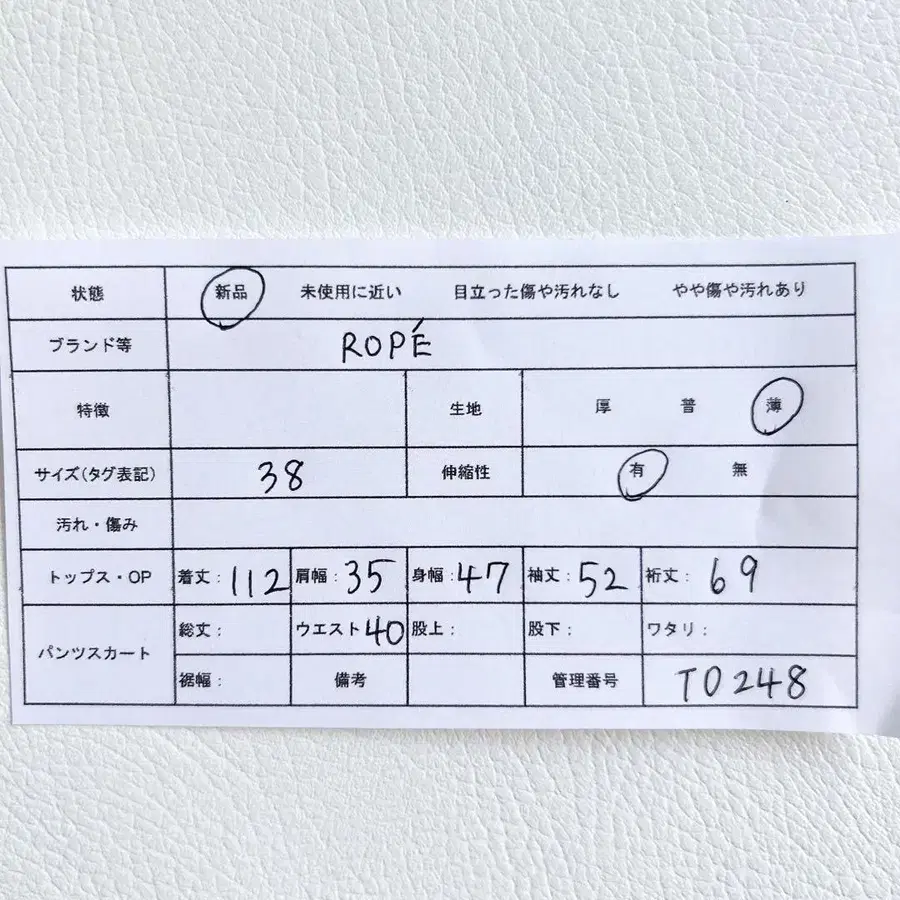 状態 新品 未使用に近い 目立った傷や汚れなし やや傷や汚れあり
ブランド等 ROPÉ
特徴 生地 厚 普 薄
サイズ(タグ表記) 38 伸縮性 有 無
汚れ・傷み
トップス・OP 着丈:112 肩幅:35 身幅:47 袖丈:52 裄丈:69
パンツスカート 総丈: ウエスト40 股上: 股下: ワタリ:
裾幅: 備考 管理番号 T0248